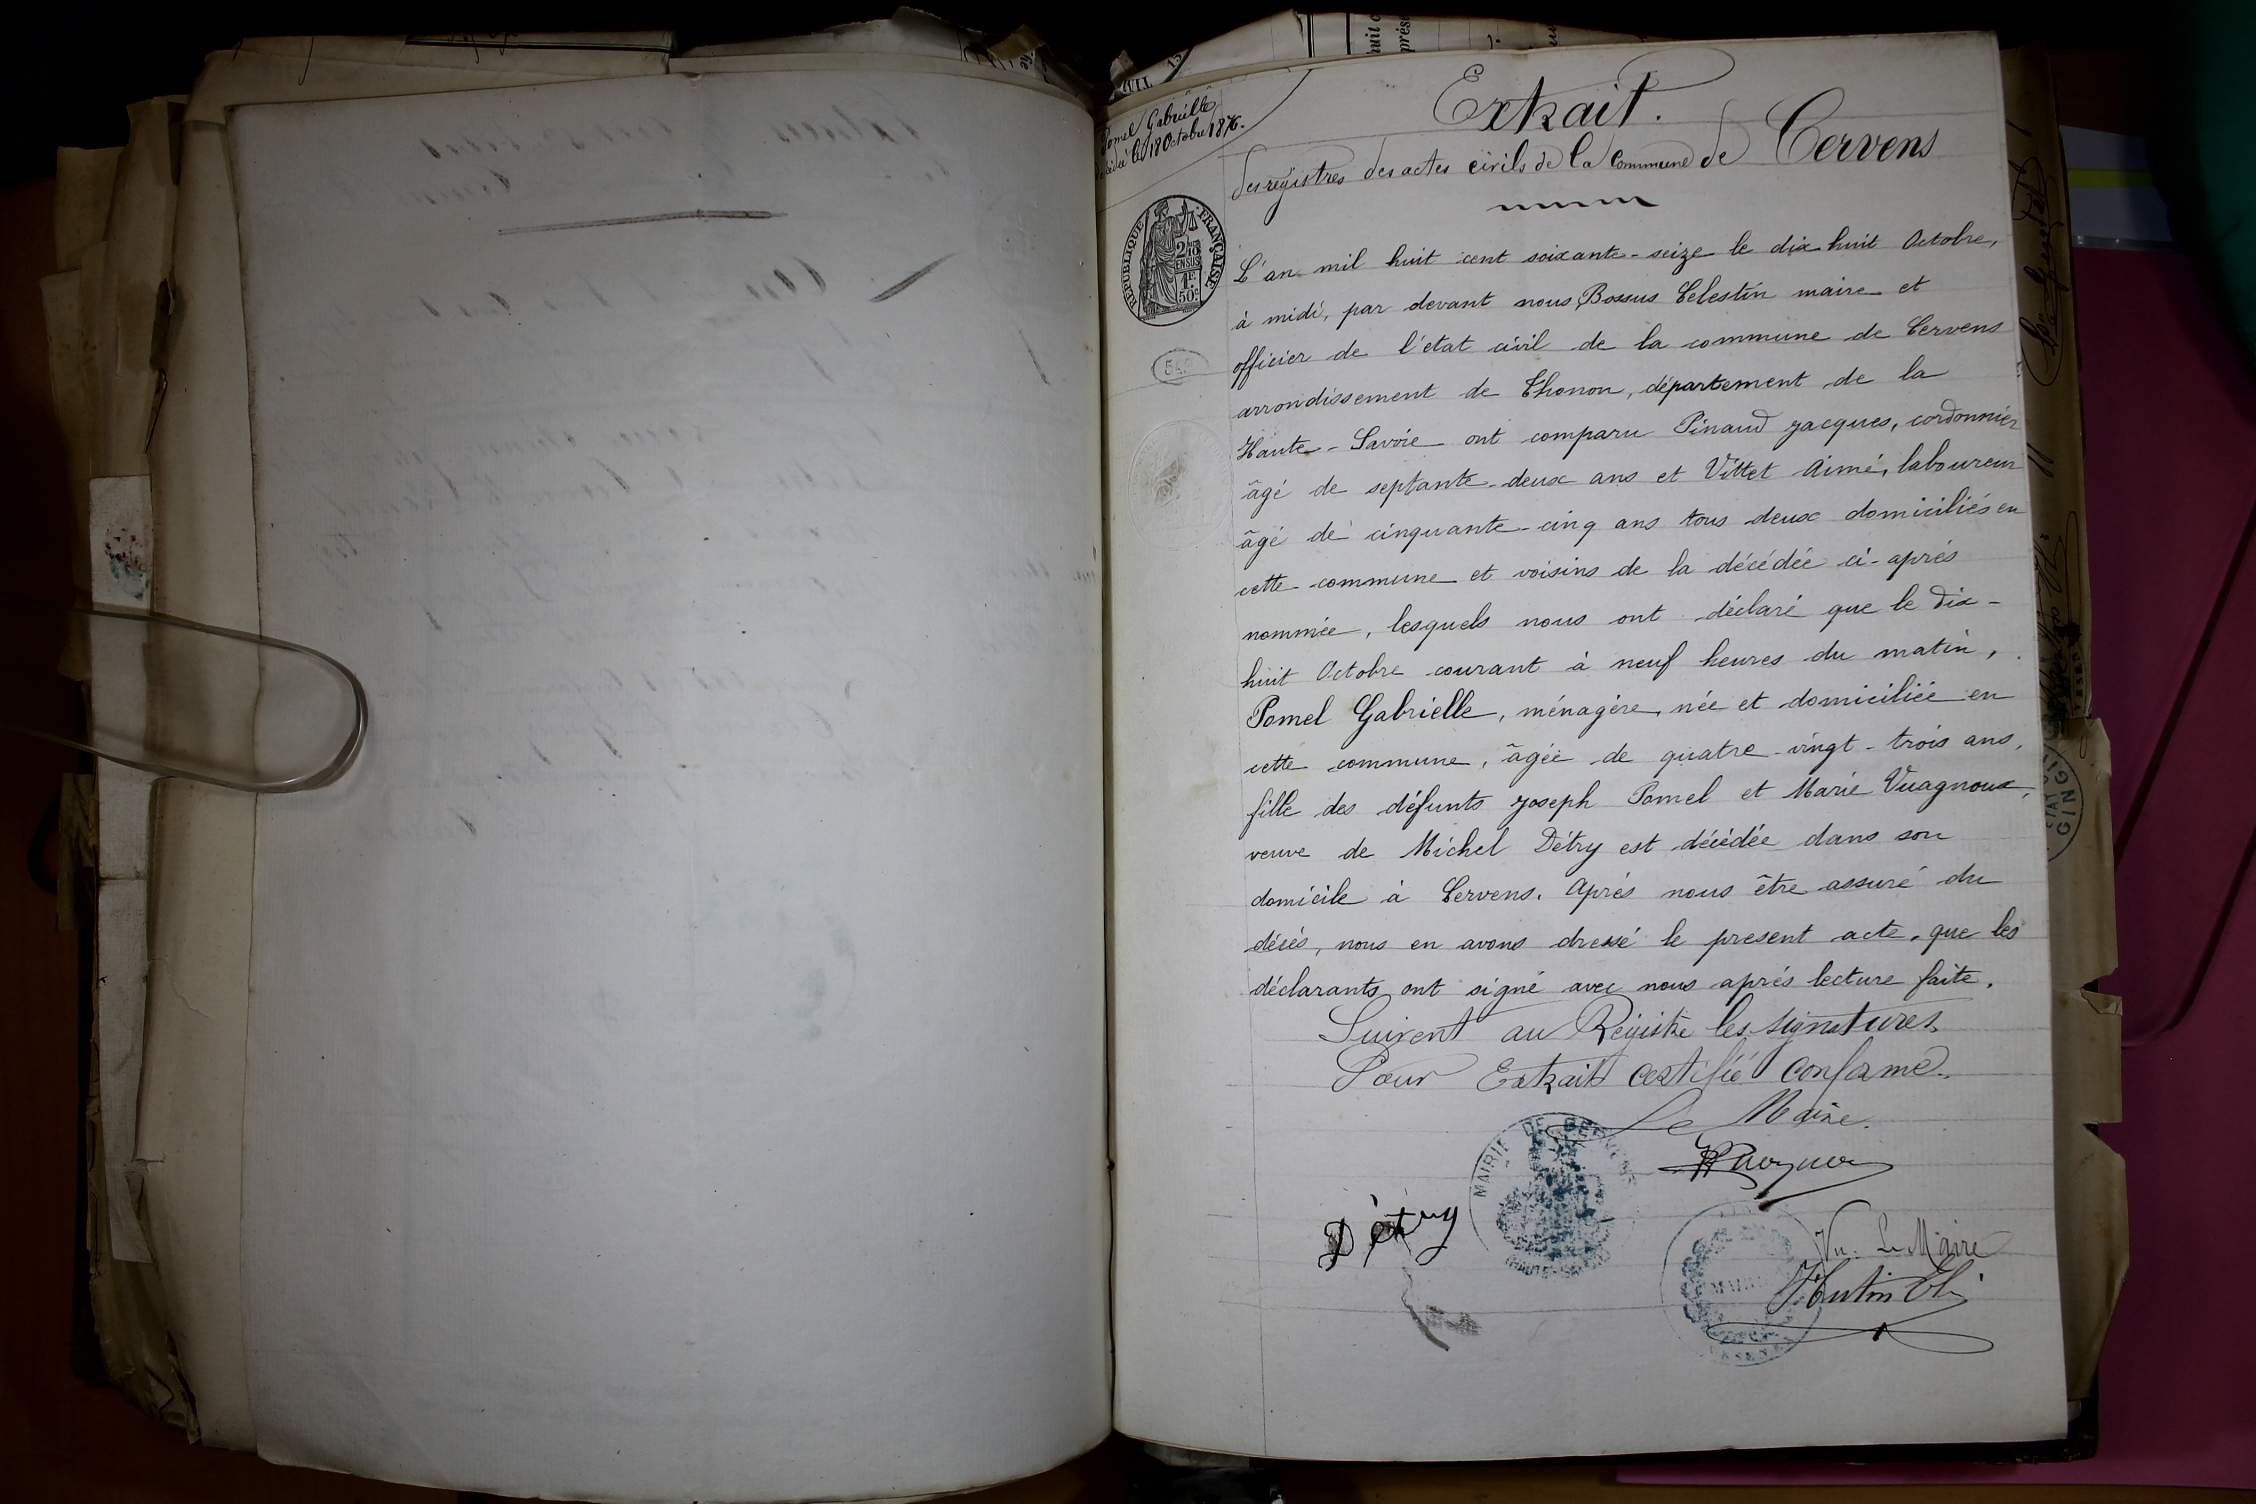 Pomel Gabrielle
décédée le 18 Octobre 1876.
Extrait.
des registres des actes civils de la Commune de Cervens
RÉPUBLIQUE FRANÇAISE
2/10 EN SUS
1F. 50c
L'an mil huit cent soixante-seize le dix huit Octobre,
à midi, par devant nous, Bossus Celestin maire et
officier de l'état civil de la commune de Cervens
arrondissement de Thonon, département de la
Haute-Savoie ont comparu Pinaud Jacques, cordonnier
âgé de septante-deux ans et Vittet Aimé, laboureur
âgé de cinquante-cinq ans tous deux domiciliés en
cette commune et voisins de la décédée ci-après
nommée, lesquels nous ont déclaré que le dix-
huit Octobre courant à neuf heures du matin,
Pomel Gabrielle, ménagère, née et domiciliée en
cette commune, âgée de quatre-vingt-trois ans,
fille des défunts Joseph Pomel et Marie Vuagnoux,
veuve de Michel Détry est décédée dans son
domicile à Cervens. Après nous être assuré du
décès, nous en avons dressé le present acte, que les
déclarants ont signé avec nous après lecture faite.
Suivent au Registre les signatures
Pour Extrait certifié conforme.
Le Maire.
MAIRIE DE CERVENS
(HAUTE-SAVOIE)
Détry
Vu. Le Maire
MAIRIE